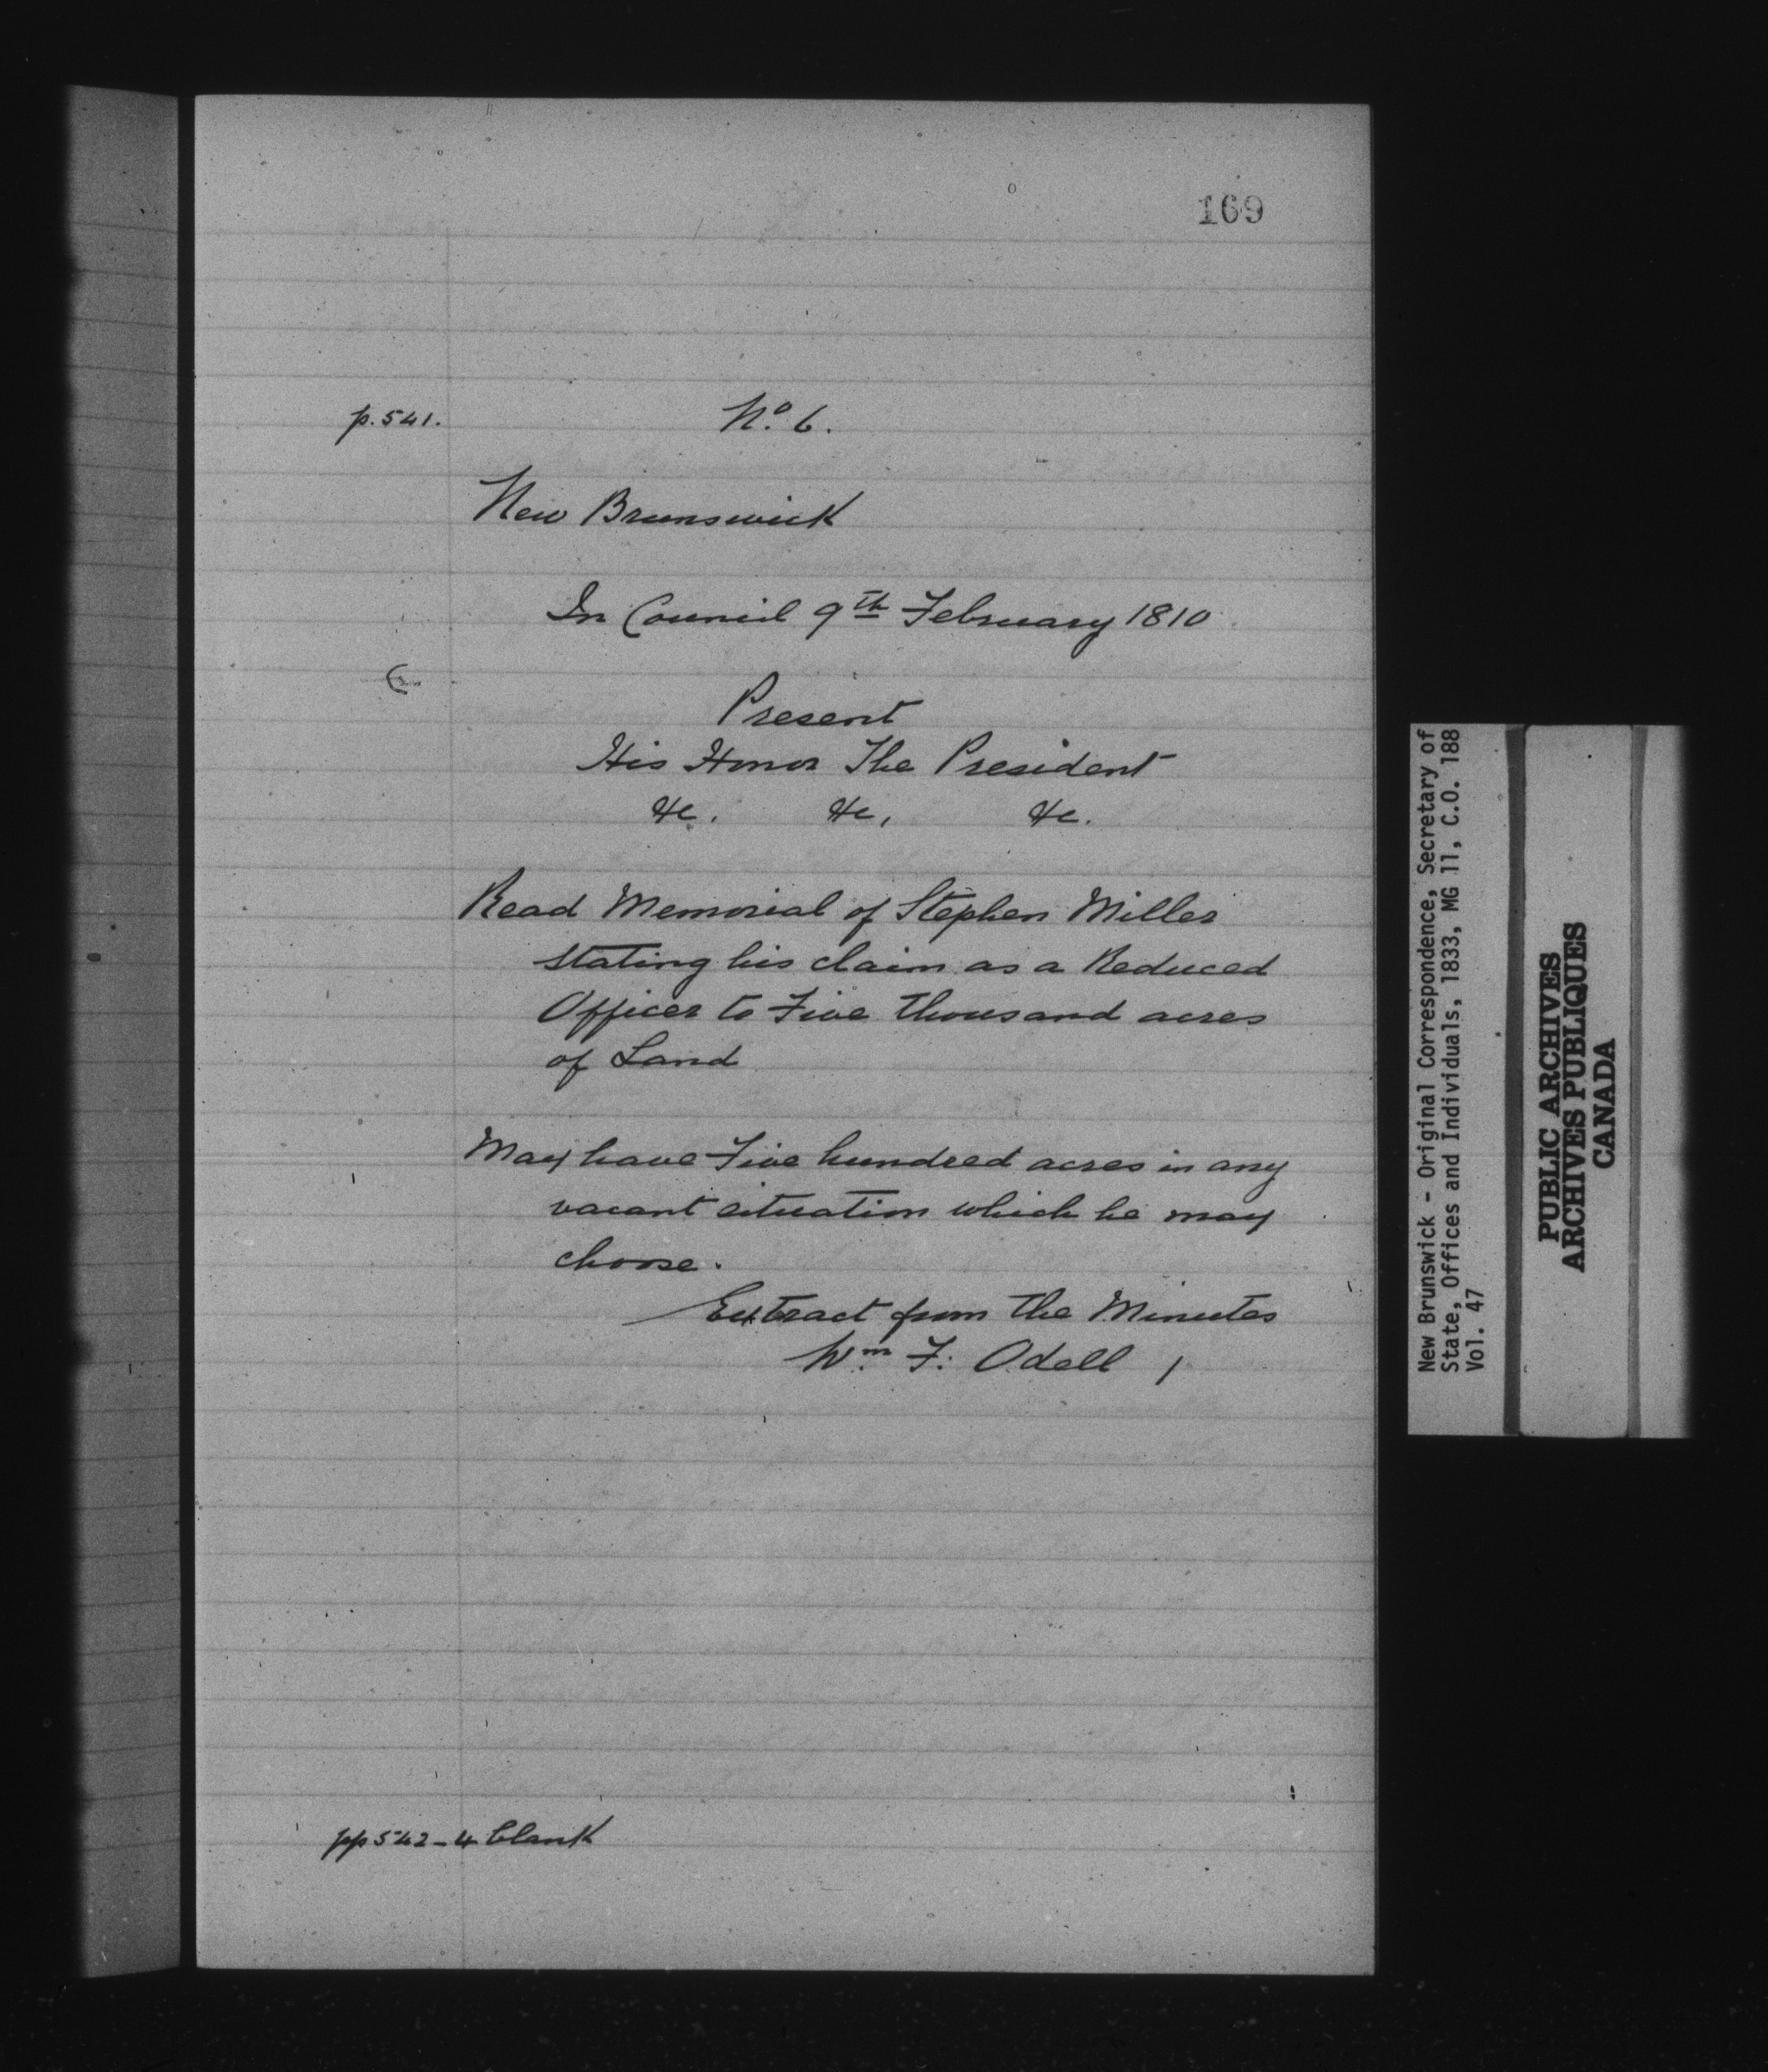 169
p. 541.
Nº. 6.
New Brunswick
In Council 9th February 1810
Present
His Honor The President
&c. &c, &c.
Read Memorial of Stephen Miller
stating his claim as a Reduced
Officer to Five thousand acres
of Land
May have Five hundred acres in any
vacant situation which he may
choose.
Extract from the Minutes
Wm. F: Odell
pp 542-4 blank
New Brunswick - Original Correspondence, Secretary of
State, Offices and Individuals, 1833, MG 11, C.O. 188
Vol. 47
PUBLIC ARCHIVES
ARCHIVES PUBLIQUES
CANADA